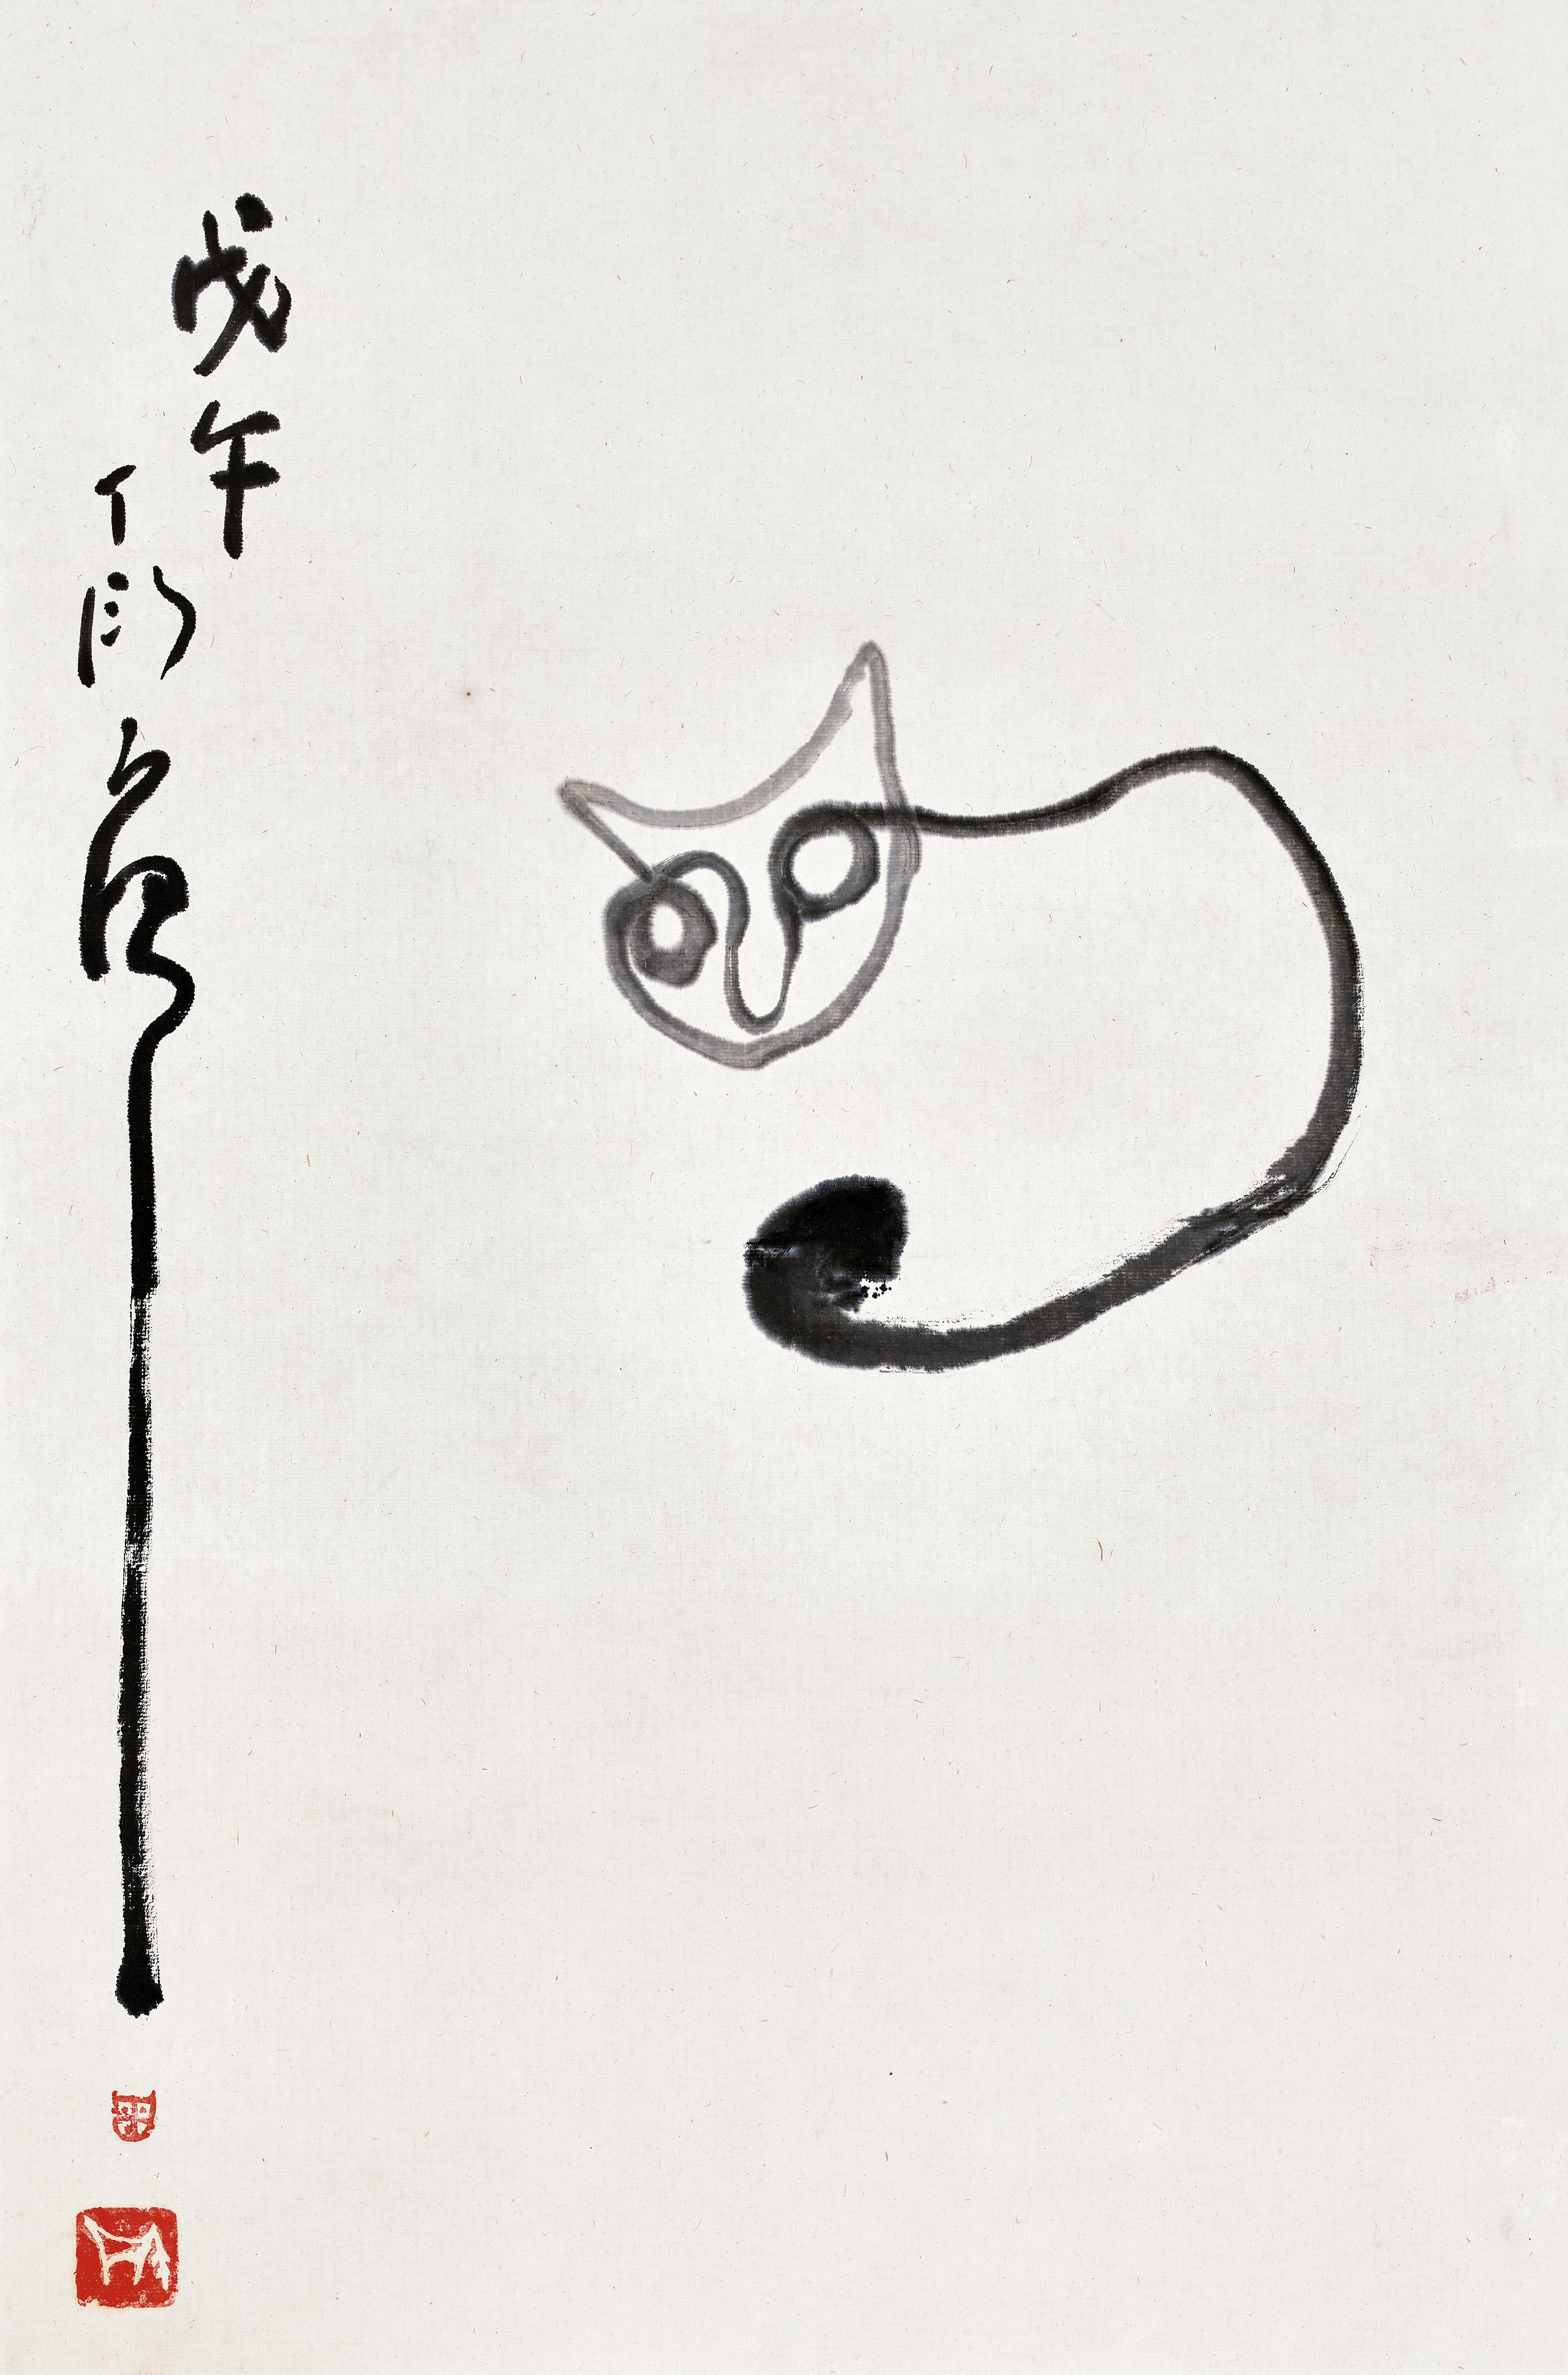 戊午
丁衍庸